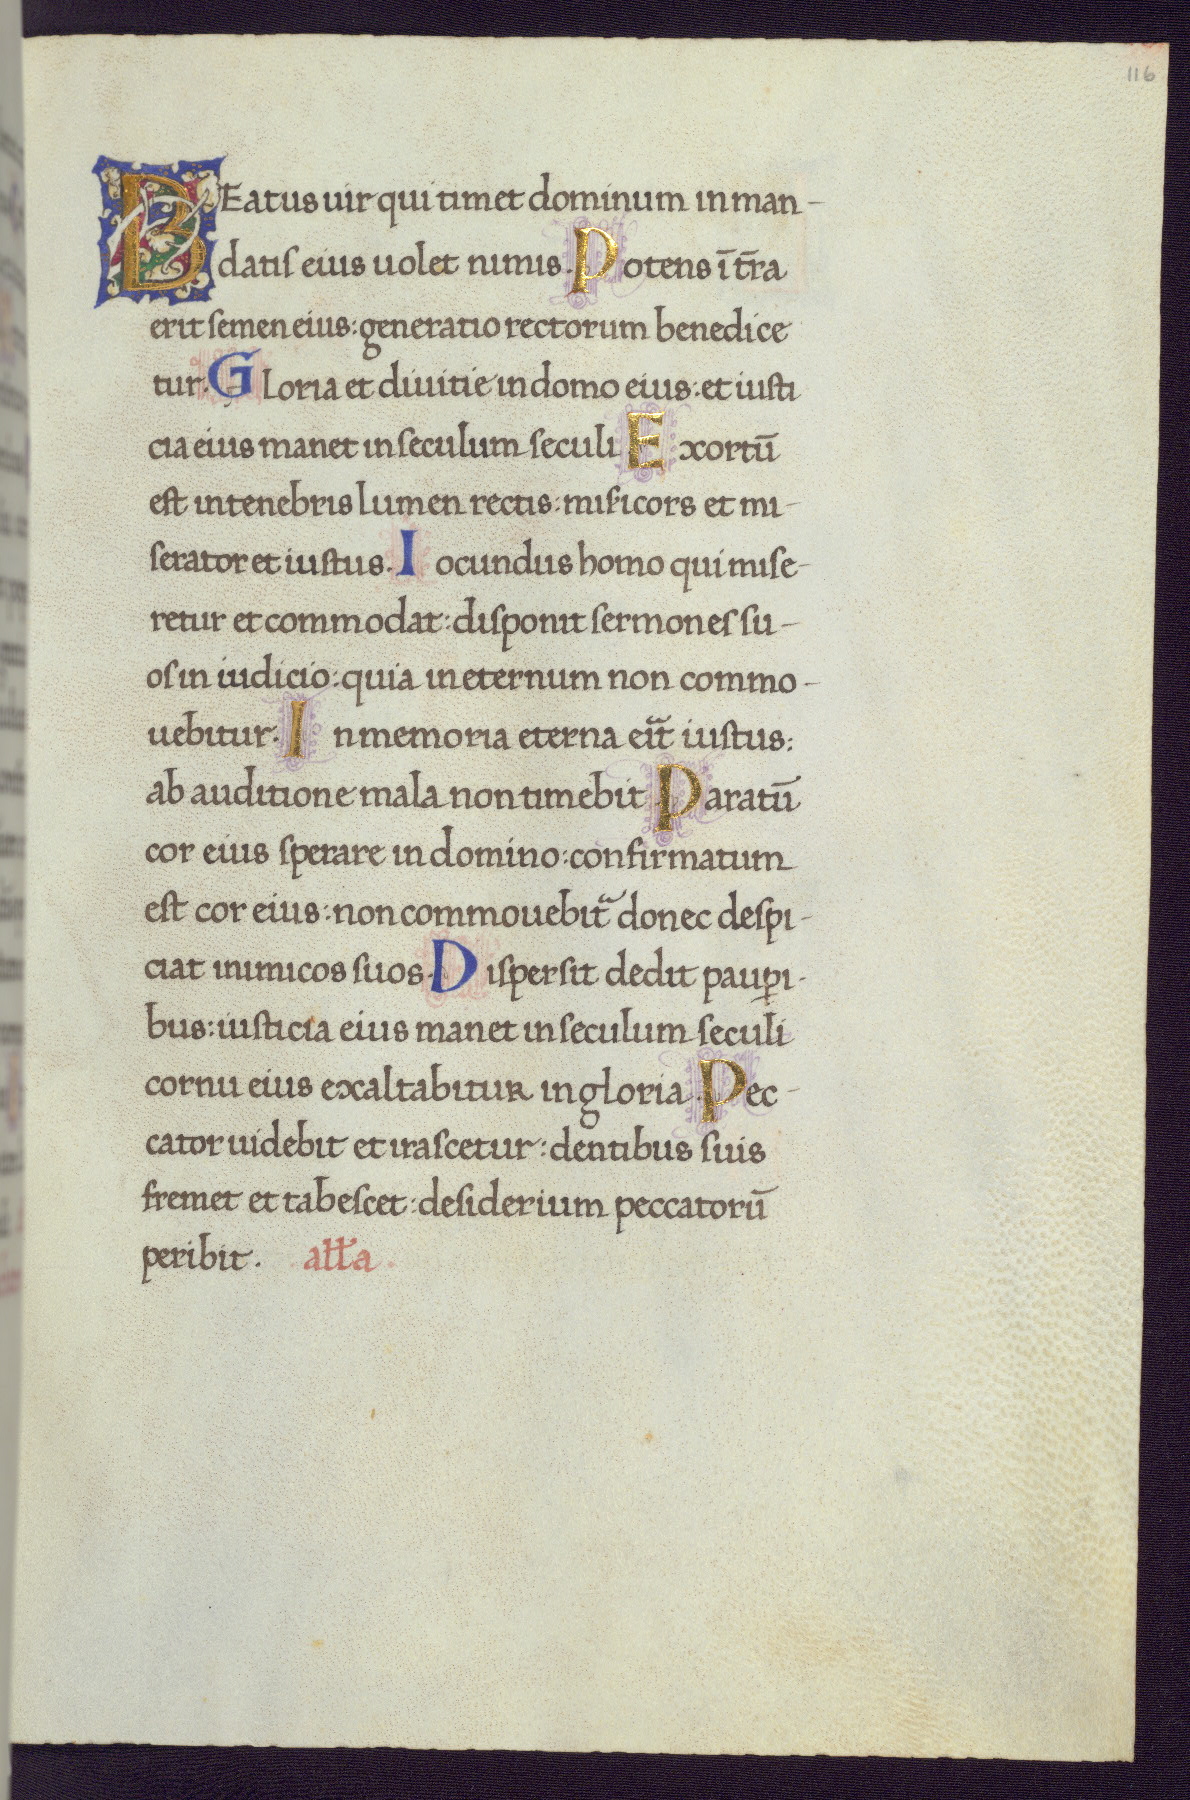 116
BEatus uir qui timet dominum in man-
datis eius uolet nimis. Potens ī tr̄a
erit semen eius: generatio rectorum benedice
tur. Gloria et diuitie in domo eius: et iusti
cia eius manet in seculum seculi Exortū
est in tenebris lumen rectis: misicors et mi-
serator et iustus. Iocundus homo qui mise-
retur et commodat: disponit sermones su-
os in iudicio: quia in eternum non commo-
uebitur. In memoria eterna erit iustus:
ab auditione mala non timebit. Paratū
cor eius sperare in domino: confirmatum
est cor eius: non commouebit̄ donec despi-
ciat inimicos suos. Dispersit dedit paup̲i-
bus: iusticia eius manet in seculum seculi
cornu eius exaltabitur in gloria. Pec-
cator uidebit et irascetur: dentibus suis
fremet et tabescet: desiderium peccatorū
peribit. all̄a.